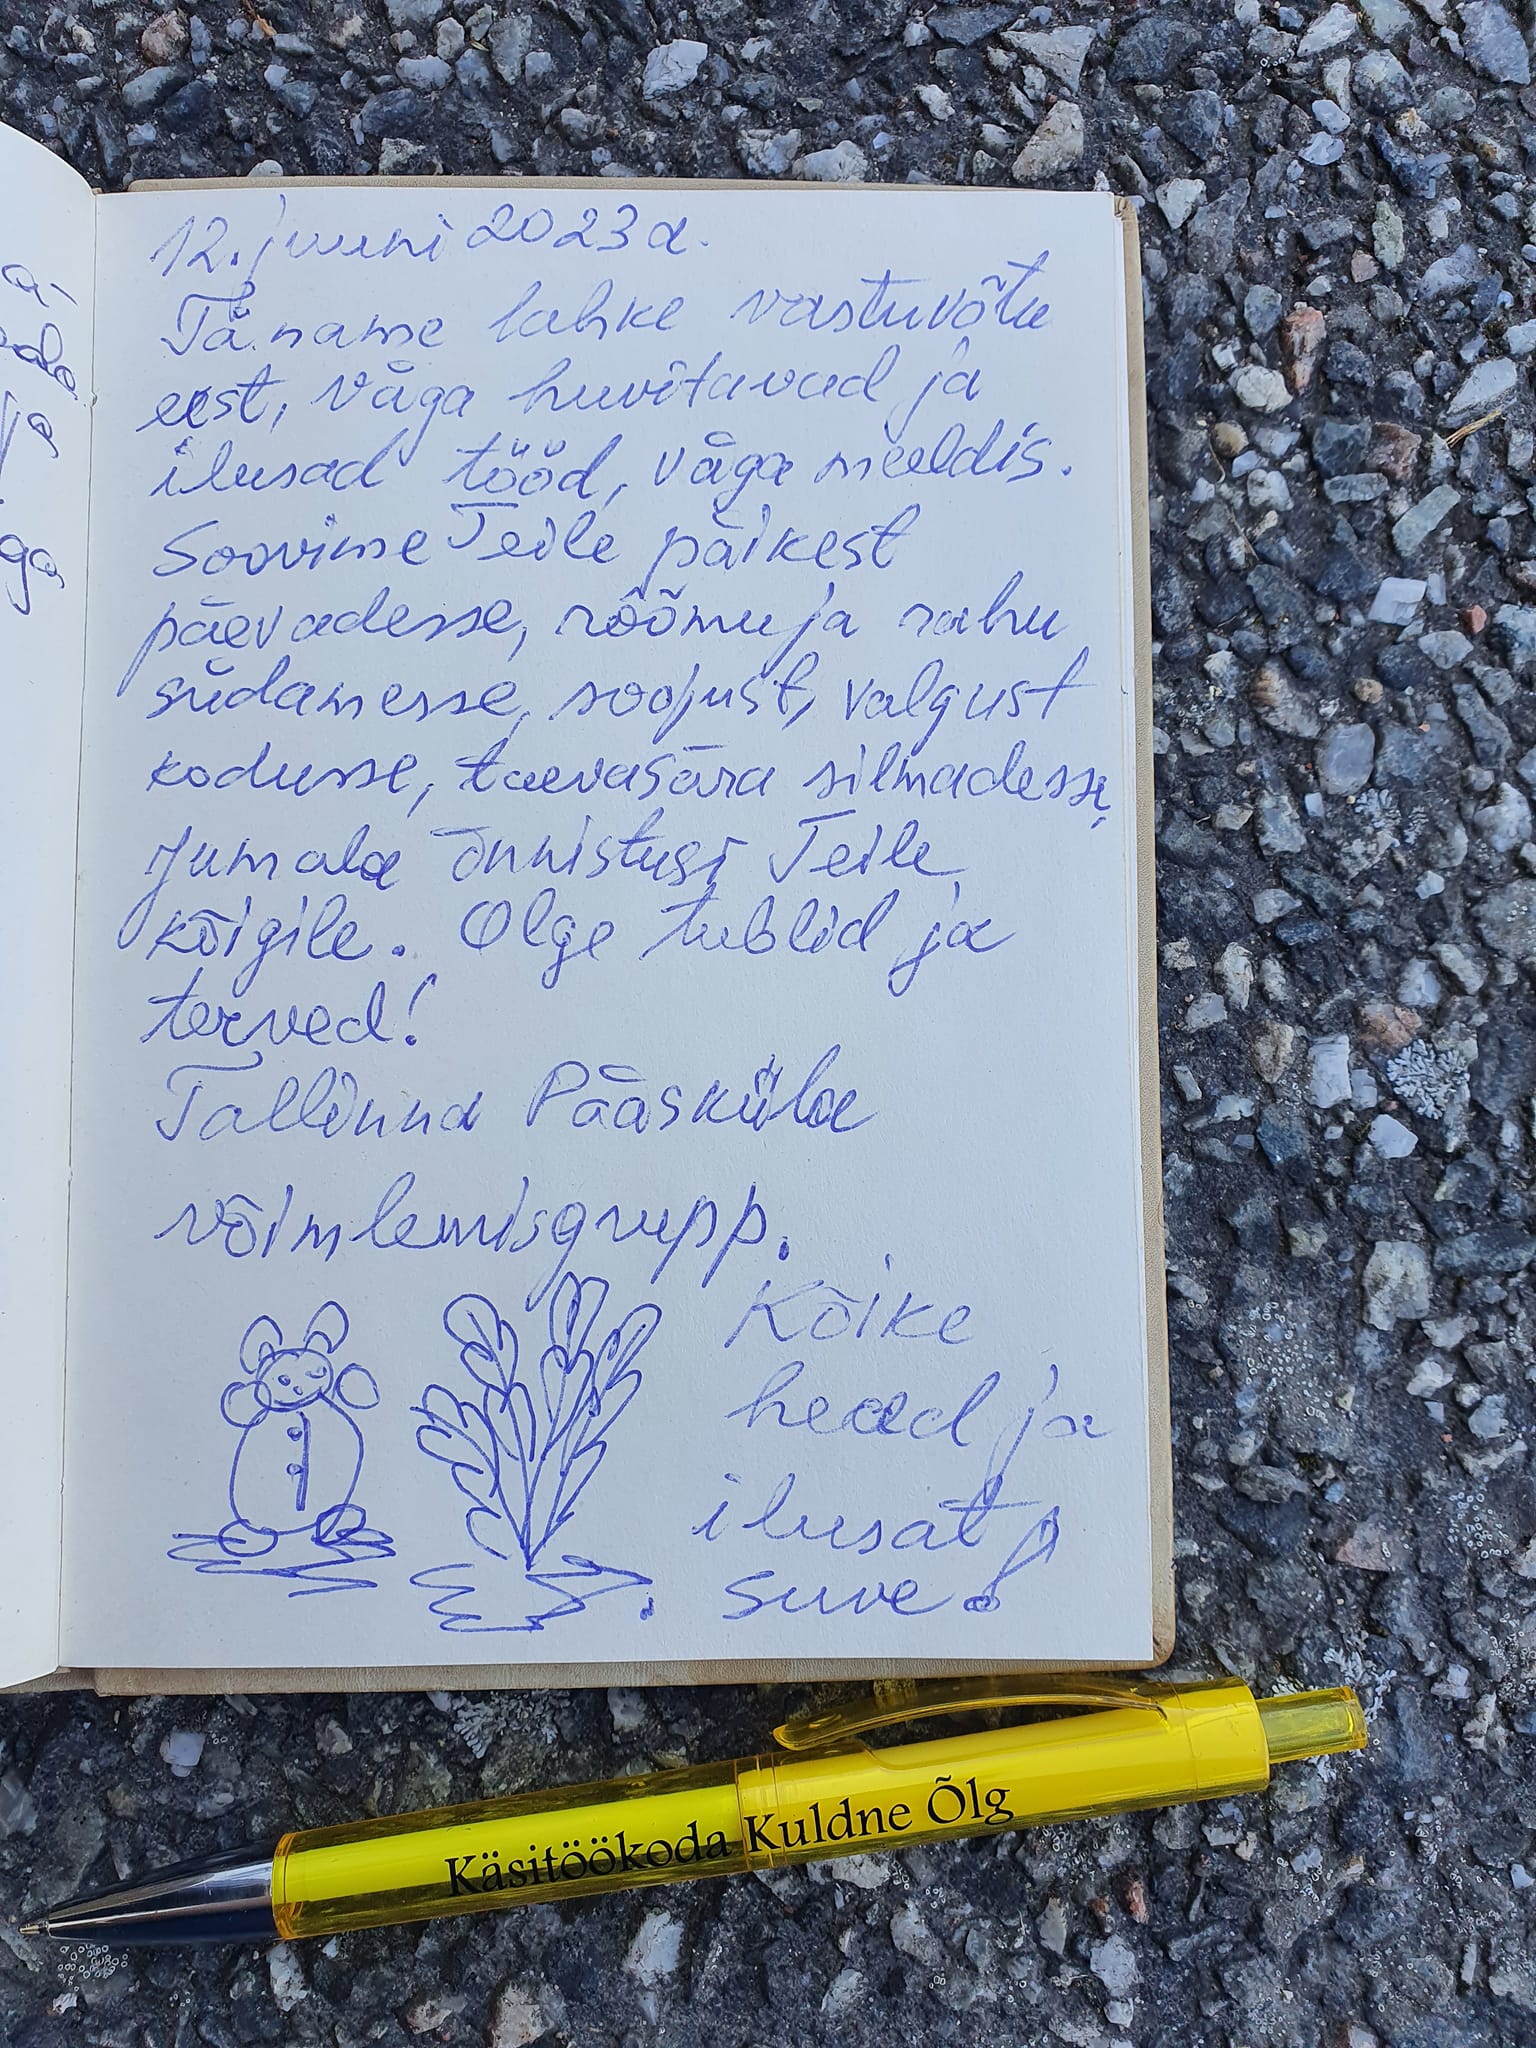 12. juuni 2023 a.
Täname lahke vastuvõtu
eest, väga huvitavad ja
ilusad tööd, väga meeldis.
Soovime Teile päikest
päevadesse, rõõmu ja rahu
südamesse, soojust, valgust
kodusse, taevasära silmadesse,
Jumala õnnistusi Teile
kõigile. Olge tublid ja
terved!
Tallinna Pääsküla
võimlemisgrupp.
Kõike
head ja
ilusat
suve!
Käsitöökoda Kuldne Õlg